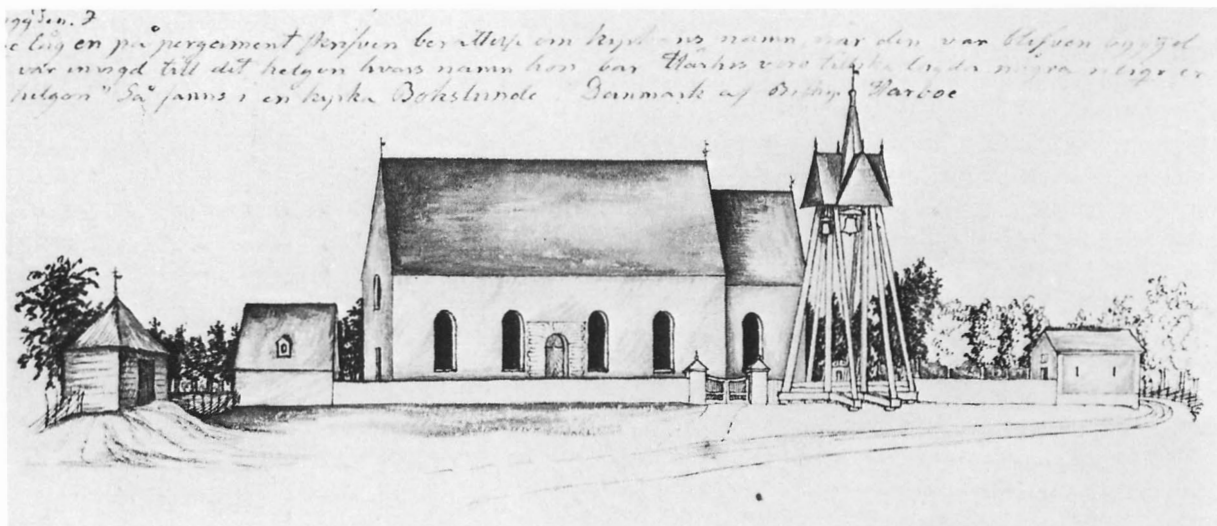 låg en på pergament skrifven berättelse om kyrkans namn, når den var blifven byggd
var invigd till det helgon hvars namn hon bar Härhos voro tillika lagda några
helgon" Så fanns i en kyrka Bokslunde Danmark af Biskop Harboe